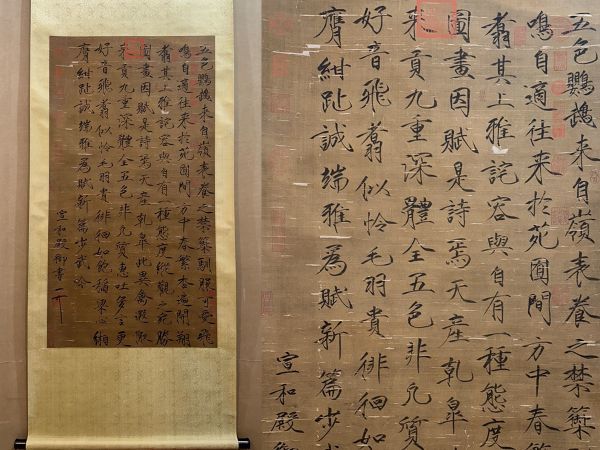 五色鸚鵡来自嶺表養之禁籞馴服可愛飛
鳴自適往来於苑囿間方中春繁杏遍開翔
翥其上雅詫容與自有一種態度縱觀之宛勝
圖畫因賦是詩焉天産乾皋此異禽遐陬
来貢九重深體全五色非凡質惠吐多言更
好音飛翥似憐毛羽貴徘徊如飽稻粱心緗
膺紺趾誠端雅為賦新篇步武吟
宣和殿御書
五色鸚鵡来自嶺表養之禁籞
鳴自適往来於苑囿間方中春繁
翥其上雅詫容與自有一種態度
圖畫因賦是詩焉天産乾皋
来貢九重深體全五色非凡質
好音飛翥似憐毛羽貴徘徊如
膺紺趾誠端雅為賦新篇步
宣和殿御